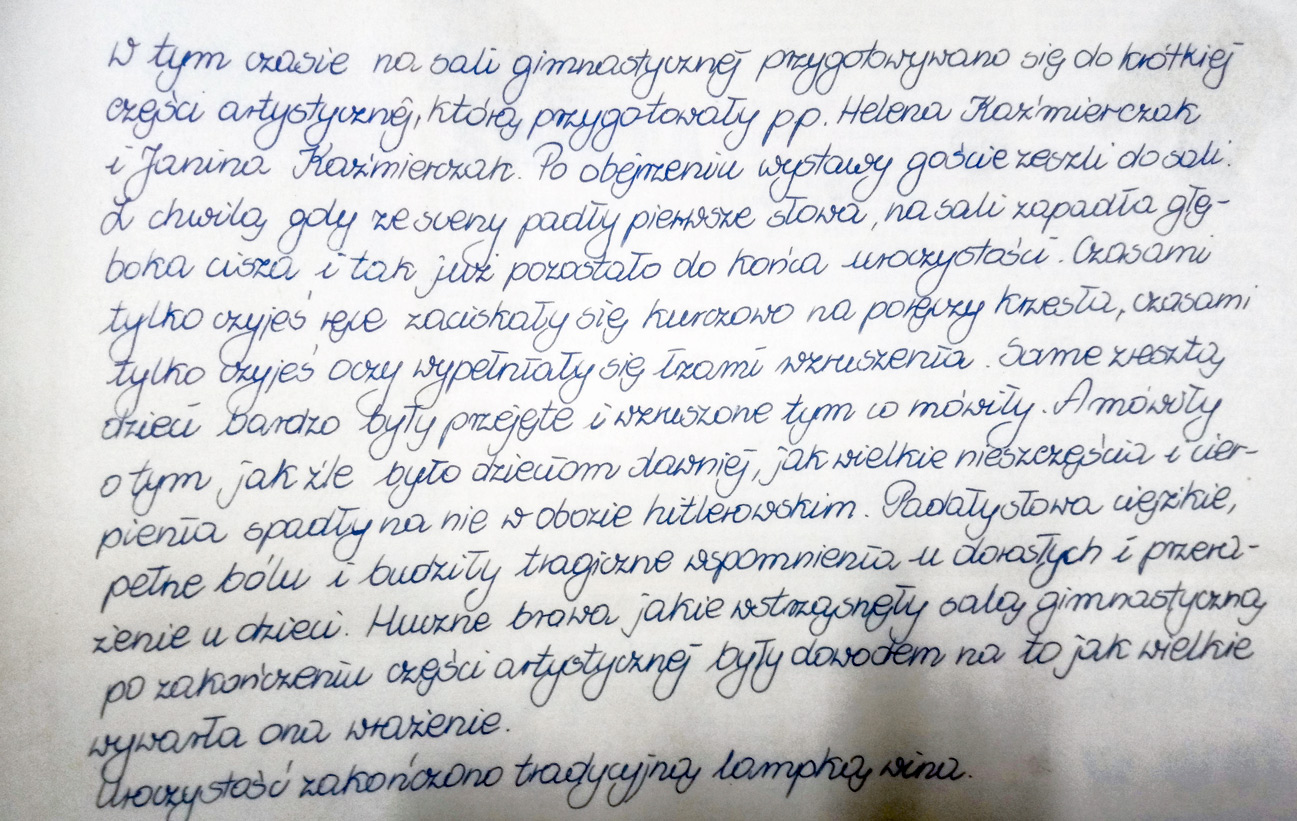 W tym czasie na sali gimnastycznej przygotowywano się do krótkiej
części artystycznej, którą przygotowały pp. Helena Kaźmierczak
i Janina Kaźmierczak. Po obejrzeniu wystawy goście zeszli do sali.
Z chwilą gdy ze sceny padły pierwsze słowa, na sali zapadła głę-
boka cisza i tak już pozostało do końca uroczystości. Czasami
tylko czyjeś ręce zaciskały się kurczowo na poręczy krzesła, czasami
tylko czyjeś oczy wypełniały się łzami wzruszenia. Same zresztą
dzieci bardzo były przejęte i wzruszone tym co mówiły. A mówiły
o tym jak źle było dzieciom dawniej, jak wielkie nieszczęścia i cier-
pienia spadły na nie w obozie hitlerowskim. Padały słowa ciężkie,
pełne bólu i budziły tragiczne wspomnienia u dorosłych i przera-
żenie u dzieci. Huczne brawa jakie wstrząsnęły salą gimnastyczną
po zakończeniu części artystycznej były dowodem na to jak wielkie
wywarła ona wrażenie.
Uroczystość zakończono tradycyjną lampką wina.